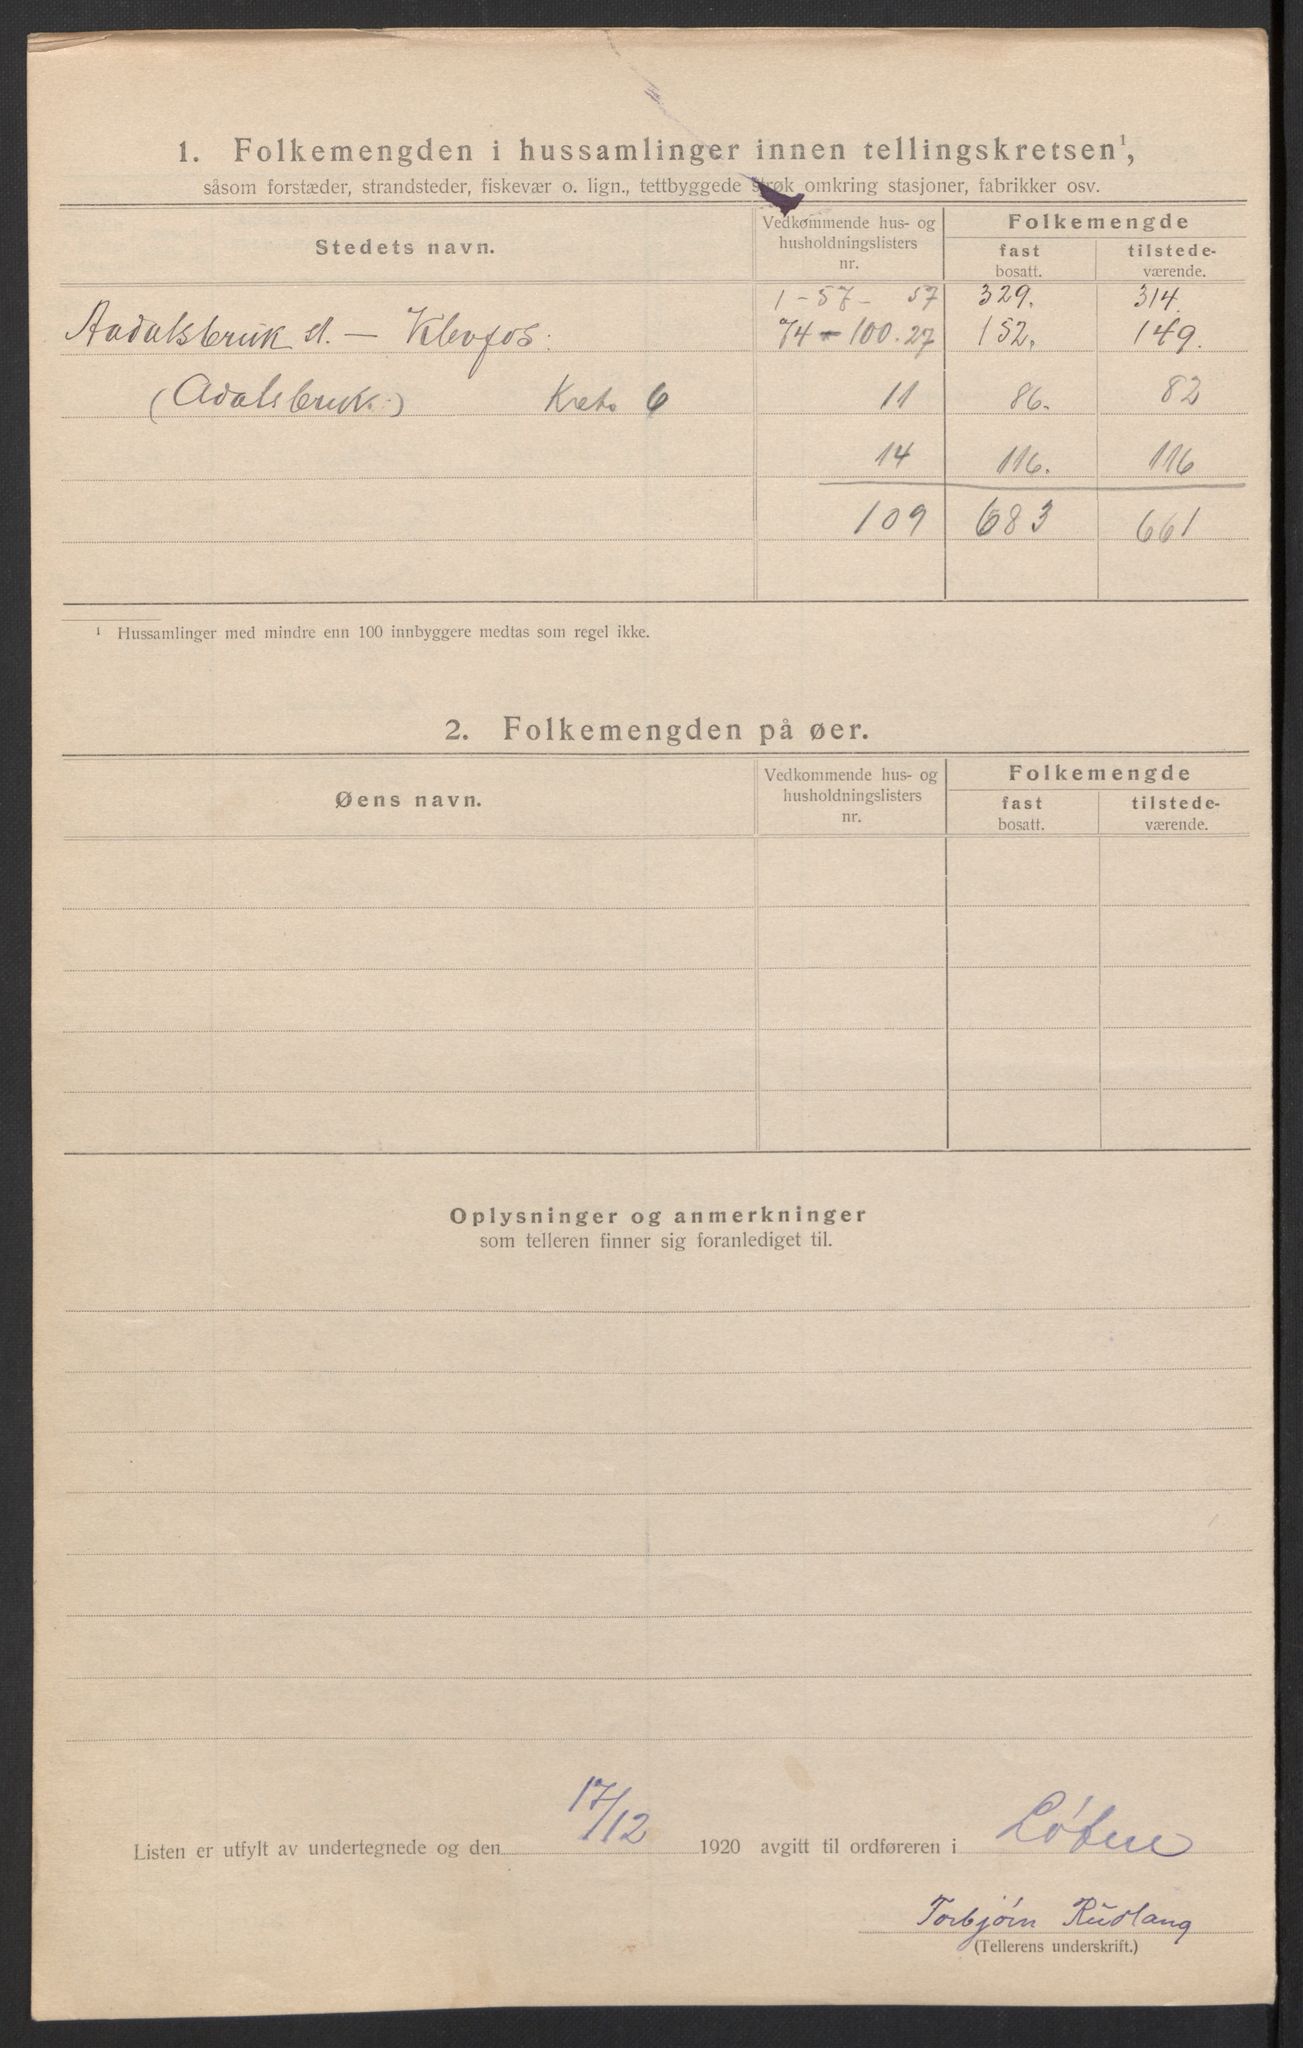 1. Folkemengden i hussamlinger innen tellingskretsen¹,
såsom forstæder, strandsteder, fiskevær o. lign., tettbyggede strøk omkring stasjoner, fabrikker osv.
Stedets navn.
Vedkommende hus- og husholdningslisters nr.
Folkemengde
fast bosatt.
tilstede-værende.
1-57- 57 329. 314.
Aadalsbruk st. — Klevfos. 74-100.27 152. 149.
(Adalsbruk.) Krets 6 11 86. 82
14 116. 116
109 683 661
¹ Hussamlinger med mindre enn 100 innbyggere medtas som regel ikke.
2. Folkemengden på øer.
Øens navn.
Vedkommende hus- og husholdningslisters nr.
Folkemengde
fast bosatt.
tilstede-værende.
Oplysninger og anmerkninger
som telleren finner sig foranlediget til.
Listen er utfylt av undertegnede og den 17/12 1920 avgitt til ordføreren i Løten
Torbjörn Rudlang
(Tellerens underskrift.)